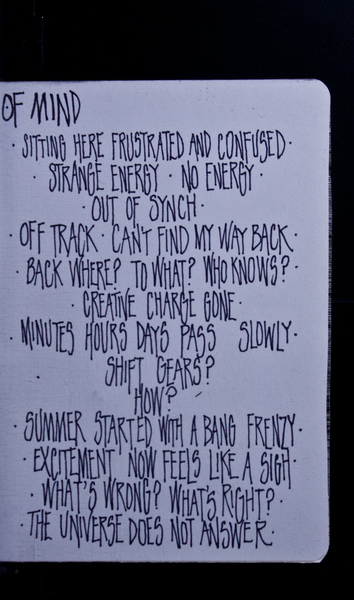 OF MIND
· SITTING HERE FRUSTRATED AND CONFUSED ·
· STRANGE ENERGY · NO ENERGY ·
· OUT OF SYNCH ·
· OFF TRACK · CAN'T FIND MY WAY BACK ·
· BACK WHERE? TO WHAT? WHO KNOWS? ·
CREATIVE CHARGE GONE ·
· MINUTES HOURS DAYS PASS SLOWLY ·
SHIFT GEARS?
HOW?
· SUMMER STARTED WITH A BANG FRENZY ·
· EXCITEMENT NOW FEELS LIKE A SIGH ·
· WHAT'S WRONG? WHAT'S RIGHT? ·
· THE UNIVERSE DOES NOT ANSWER ·